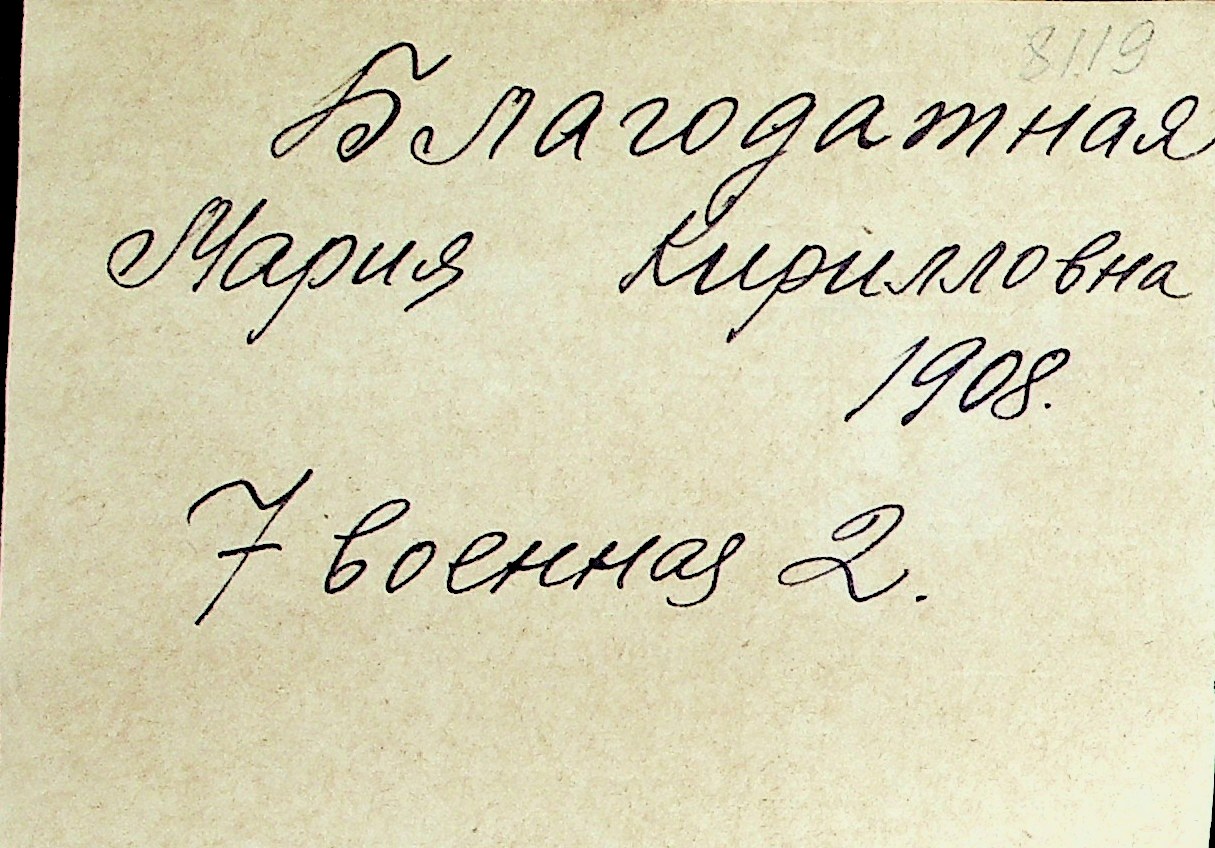 8119
Благодатная
Мария Кирилловна
1908.
7 военная 2.